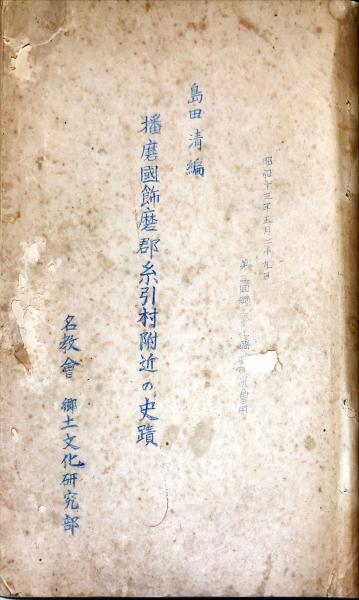 昭和十三年五月二十九日
第二回郷土文化講
島田清編
播磨國飾磨郡糸引村附近の史蹟
名教會 郷土文化研究部